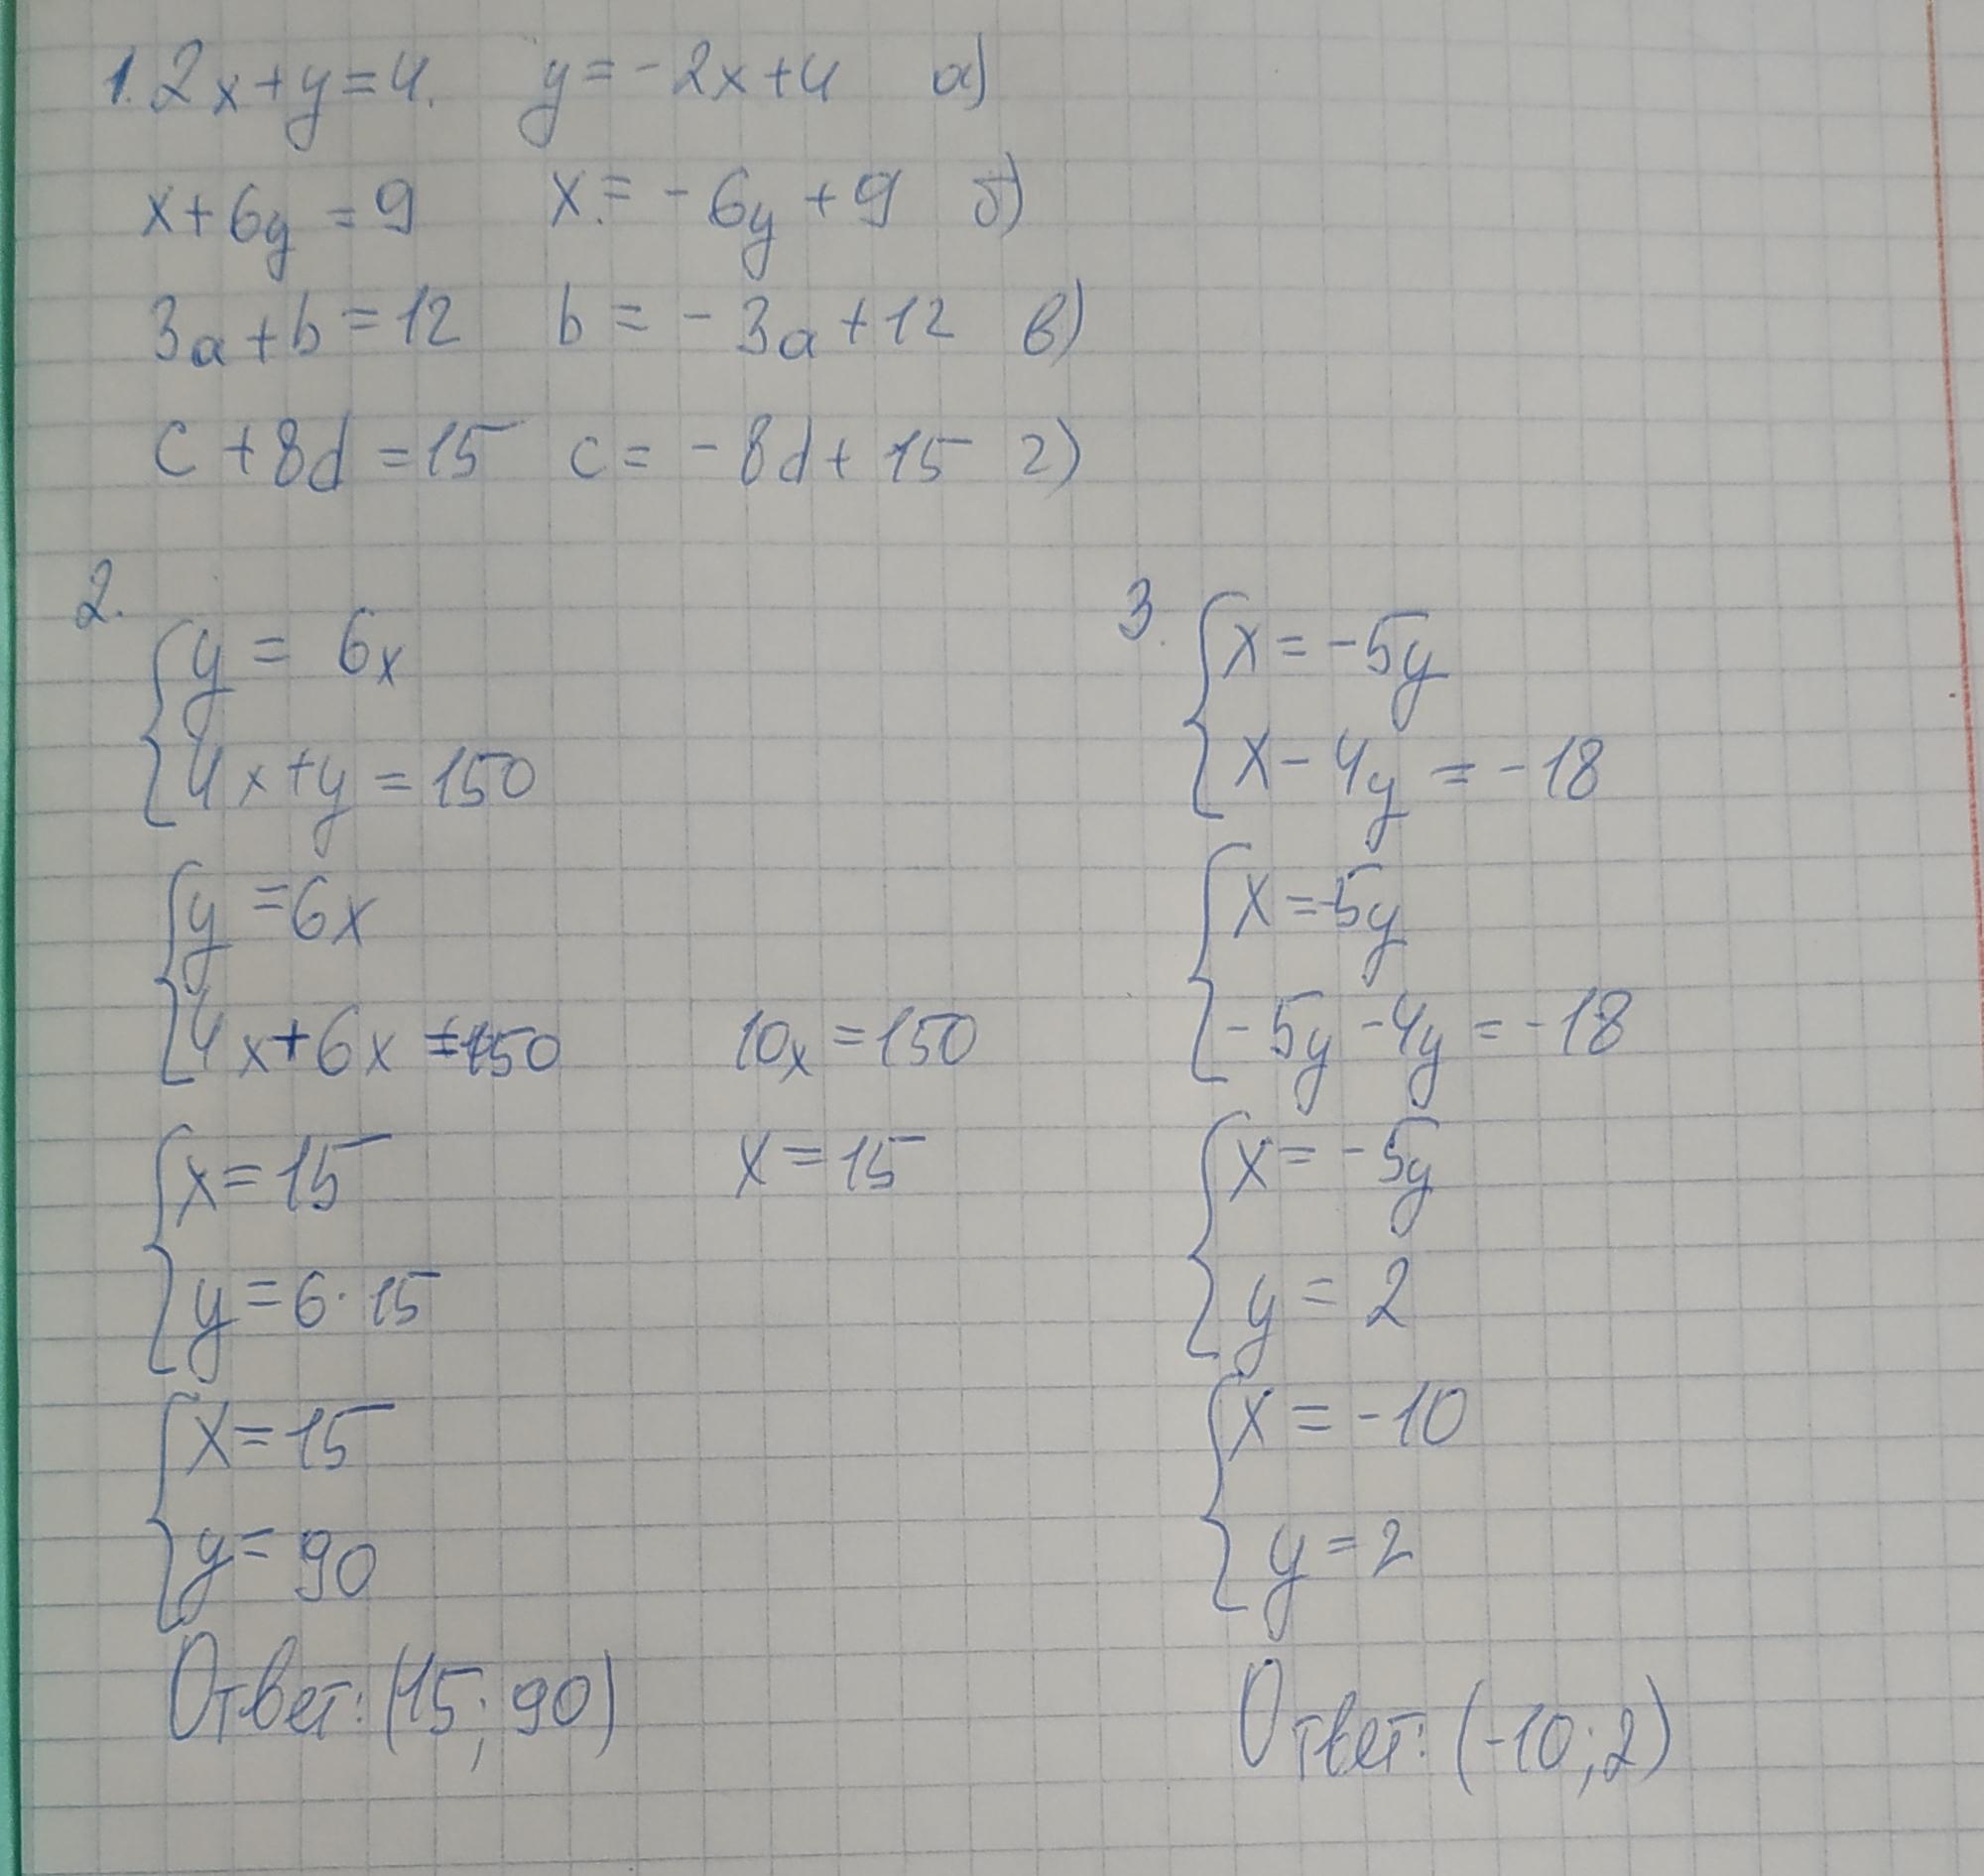 1. 2x+y=4. y=-2x+4 а)
x+6y=9 x.=-6y+9 б)
3a+b=12 b=-3a+12 в)
c+8d=15 c=-8d+15 г)
2.
y=6x
4x+y=150
y=6x
4x+6x=150 10x=150
x=15 x=15
y=6·15
x=15
y=90
Ответ: (15; 90)
3.
x=-5y
x-4y=-18
x=-5y
-5y-4y=-18
x=-5y
y=2
x=-10
y=2
Ответ: (-10;2)